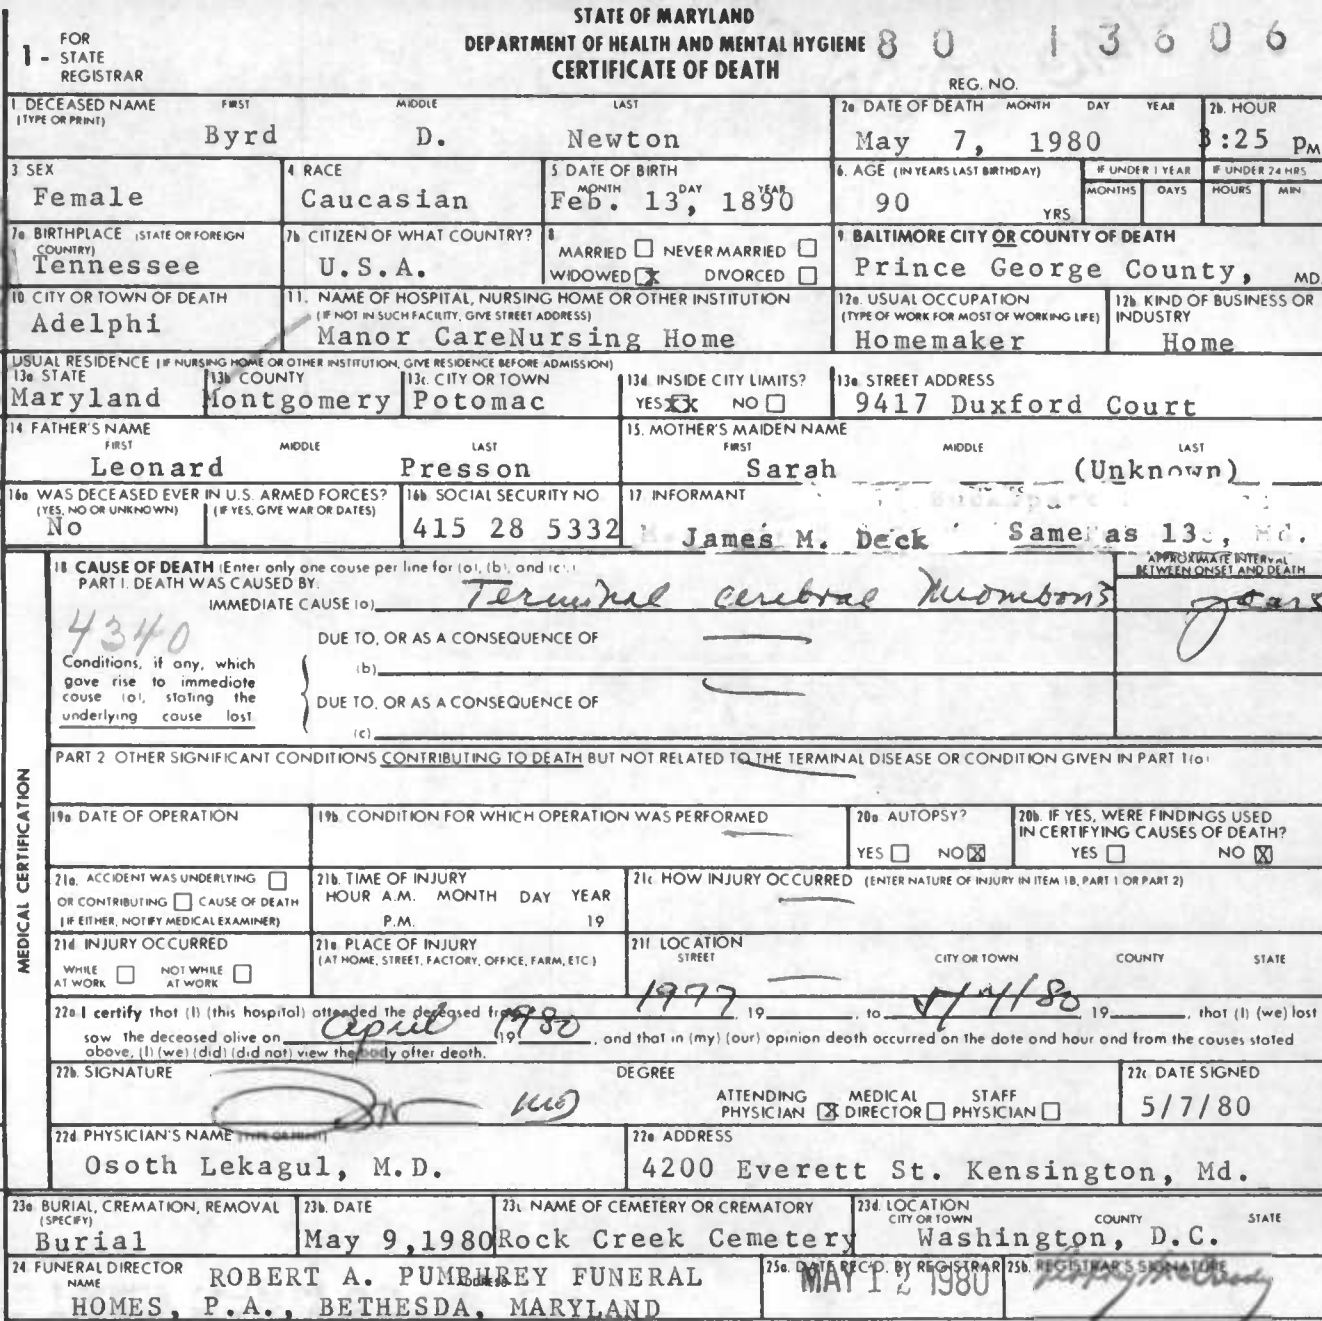 STATE OF MARYLAND
DEPARTMENT OF HEALTH AND MENTAL HYGIENE
CERTIFICATE OF DEATH
1 - FOR STATE REGISTRAR
80 13606
REG. NO.
1. DECEASED NAME (TYPE OR PRINT) FIRST MIDDLE LAST
Byrd D. Newton
2a DATE OF DEATH MONTH DAY YEAR
May 7, 1980
2b. HOUR
3:25 PM
3 SEX
Female
4 RACE
Caucasian
5 DATE OF BIRTH MONTH DAY YEAR
Feb. 13, 1890
6. AGE (IN YEARS LAST BIRTHDAY)
90 YRS
IF UNDER 1 YEAR MONTHS DAYS
IF UNDER 24 HRS HOURS MIN
7a BIRTHPLACE (STATE OR FOREIGN COUNTRY)
Tennessee
7b CITIZEN OF WHAT COUNTRY?
U.S.A.
8 MARRIED NEVER MARRIED
WIDOWED X DIVORCED
9 BALTIMORE CITY OR COUNTY OF DEATH
Prince George County, MD.
10 CITY OR TOWN OF DEATH
Adelphi
11. NAME OF HOSPITAL, NURSING HOME OR OTHER INSTITUTION
(IF NOT IN SUCH FACILITY, GIVE STREET ADDRESS)
Manor CareNursing Home
12a. USUAL OCCUPATION
(TYPE OF WORK FOR MOST OF WORKING LIFE)
Homemaker
12b KIND OF BUSINESS OR INDUSTRY
Home
USUAL RESIDENCE (IF NURSING HOME OR OTHER INSTITUTION, GIVE RESIDENCE BEFORE ADMISSION)
13a STATE
Maryland
13b COUNTY
Montgomery
13c. CITY OR TOWN
Potomac
13d. INSIDE CITY LIMITS?
YES XX NO
13e STREET ADDRESS
9417 Duxford Court
14 FATHER'S NAME
FIRST MIDDLE LAST
Leonard Presson
15. MOTHER'S MAIDEN NAME
FIRST MIDDLE LAST
Sarah (Unknown)
16a WAS DECEASED EVER IN U.S. ARMED FORCES?
(YES, NO OR UNKNOWN) (IF YES, GIVE WAR OR DATES)
No
16b SOCIAL SECURITY NO.
415 28 5332
17 INFORMANT
James M. Deck Same as 13, Md.
18 CAUSE OF DEATH (Enter only one cause per line for (a), (b), and (c).)
PART I. DEATH WAS CAUSED BY:
APPROXIMATE INTERVAL BETWEEN ONSET AND DEATH
IMMEDIATE CAUSE (a) Terminal cerebral thrombosis years
4340
DUE TO, OR AS A CONSEQUENCE OF
(b)
Conditions, if any, which gave rise to immediate cause (a), stating the underlying cause last.
DUE TO, OR AS A CONSEQUENCE OF
(c)
PART 2 OTHER SIGNIFICANT CONDITIONS CONTRIBUTING TO DEATH BUT NOT RELATED TO THE TERMINAL DISEASE OR CONDITION GIVEN IN PART 1(a)
MEDICAL CERTIFICATION
19a DATE OF OPERATION
19b. CONDITION FOR WHICH OPERATION WAS PERFORMED
20a AUTOPSY?
YES NO X
20b. IF YES, WERE FINDINGS USED IN CERTIFYING CAUSES OF DEATH?
YES NO X
21a. ACCIDENT WAS UNDERLYING
OR CONTRIBUTING CAUSE OF DEATH
(IF EITHER, NOTIFY MEDICAL EXAMINER)
21b. TIME OF INJURY
HOUR A.M. MONTH DAY YEAR
P.M. 19
21c HOW INJURY OCCURRED (ENTER NATURE OF INJURY IN ITEM 18, PART 1 OR PART 2)
21d INJURY OCCURRED
WHILE AT WORK NOT WHILE AT WORK
21e PLACE OF INJURY
(AT HOME, STREET, FACTORY, OFFICE, FARM, ETC.)
21f LOCATION
STREET CITY OR TOWN COUNTY STATE
22a I certify that (I) (this hospital) attended the deceased from 1977, 19 , to 5/7/80, 19 , that (I) (we) last
saw the deceased alive on April 1980, and that in (my) (our) opinion death occurred on the date and hour and from the causes stated
above, (I) (we) (did) (did not) view the body after death.
22b. SIGNATURE DEGREE
MD
ATTENDING PHYSICIAN X MEDICAL DIRECTOR STAFF PHYSICIAN
22c DATE SIGNED
5/7/80
22d. PHYSICIAN'S NAME (TYPE OR PRINT)
Osoth Lekagul, M.D.
22e ADDRESS
4200 Everett St. Kensington, Md.
23a BURIAL, CREMATION, REMOVAL (SPECIFY)
Burial
23b. DATE
May 9,1980
23c NAME OF CEMETERY OR CREMATORY
Rock Creek Cemetery
23d. LOCATION
CITY OR TOWN COUNTY STATE
Washington, D.C.
24 FUNERAL DIRECTOR
NAME ADDRESS
ROBERT A. PUMPHREY FUNERAL
HOMES, P.A., BETHESDA, MARYLAND
25a. DATE REC'D. BY REGISTRAR
MAY 12 1980
25b. REGISTRAR'S SIGNATURE